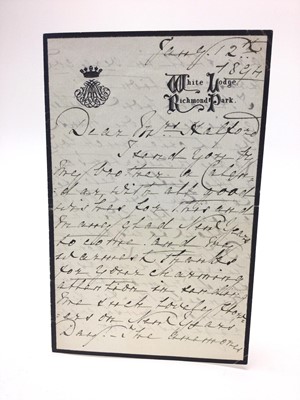 Jany. 12th
1894
White Lodge,
Richmond Park.
Dear Mrs Halford
I send you by
my brother a Calen-
dar with all good
wishes for this and
many glad New Years
to come and my
warmest thanks
for your charming
attention in sending
me such lovely flow-
ers on New Years
Day. - The anemones